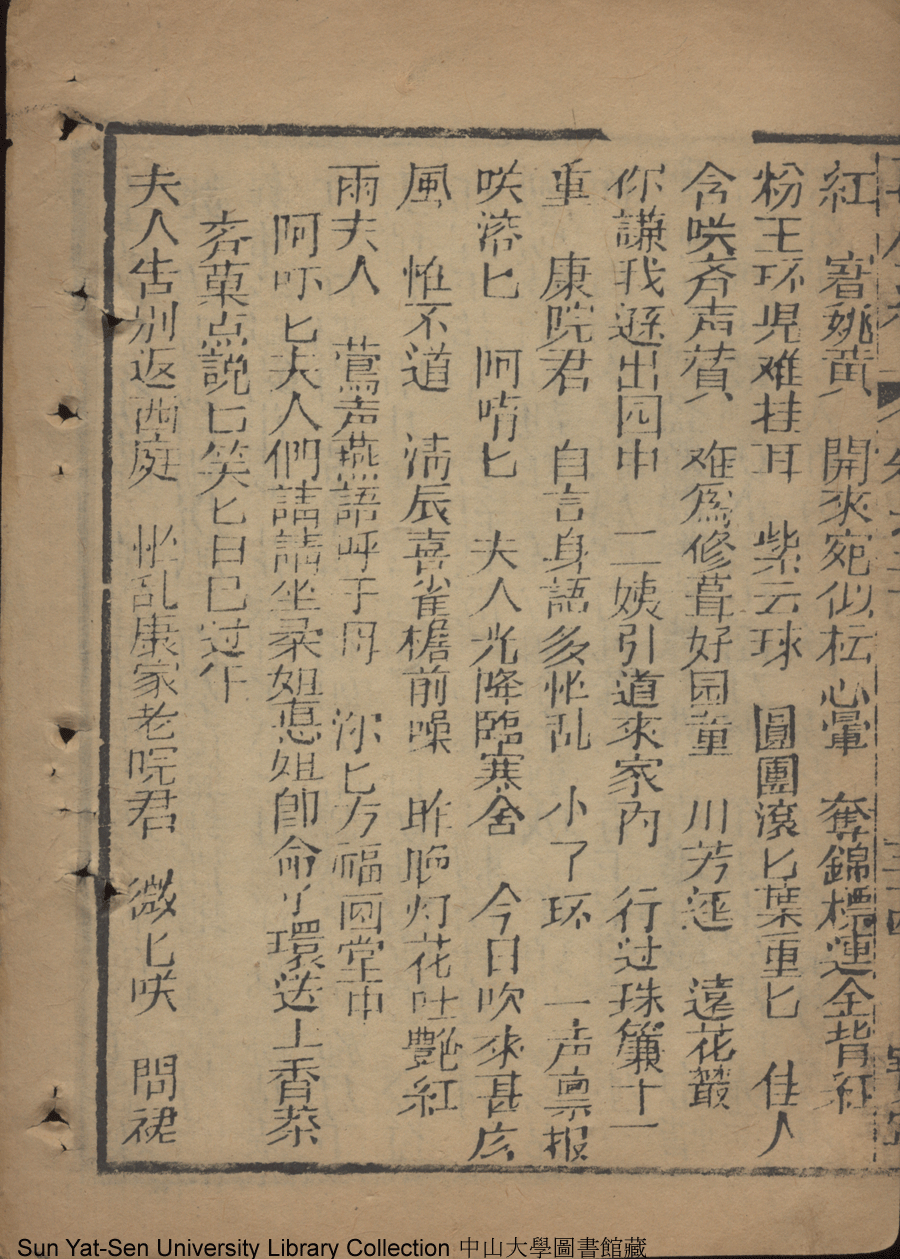 紅　窘姚黃　開來宛似枟心暈　奪錦標連全背紅
粉王环児难挂耳　紫云球　圓團滾匕葉重匕　佳人
含咲斉声賛　难為修葺好园童　川芳迳　遠花叢
你謙我遜出园中　二姨引道來家內　行过珠簾十一
重　康院君　自言身語多忙乱　小了环　一声禀报
咲溶匕　阿唷匕　夫人光降臨寒舍　今日吹來甚庅
風　怪不道　清辰喜雀檐前噪　昨晚灯花吐艷紅
雨夫人　鶯声燕語呼于母　你匕万福画堂中
阿吓匕夫人們請請坐柔姐惠姐即命了環送上香茶
斉菓点説匕笑匕日已过午
夫人告别返西庭　忙乱康家老院君　微匕咲　問裙
Sun Yat-Sen University Library Collection 中山大學圖書館藏